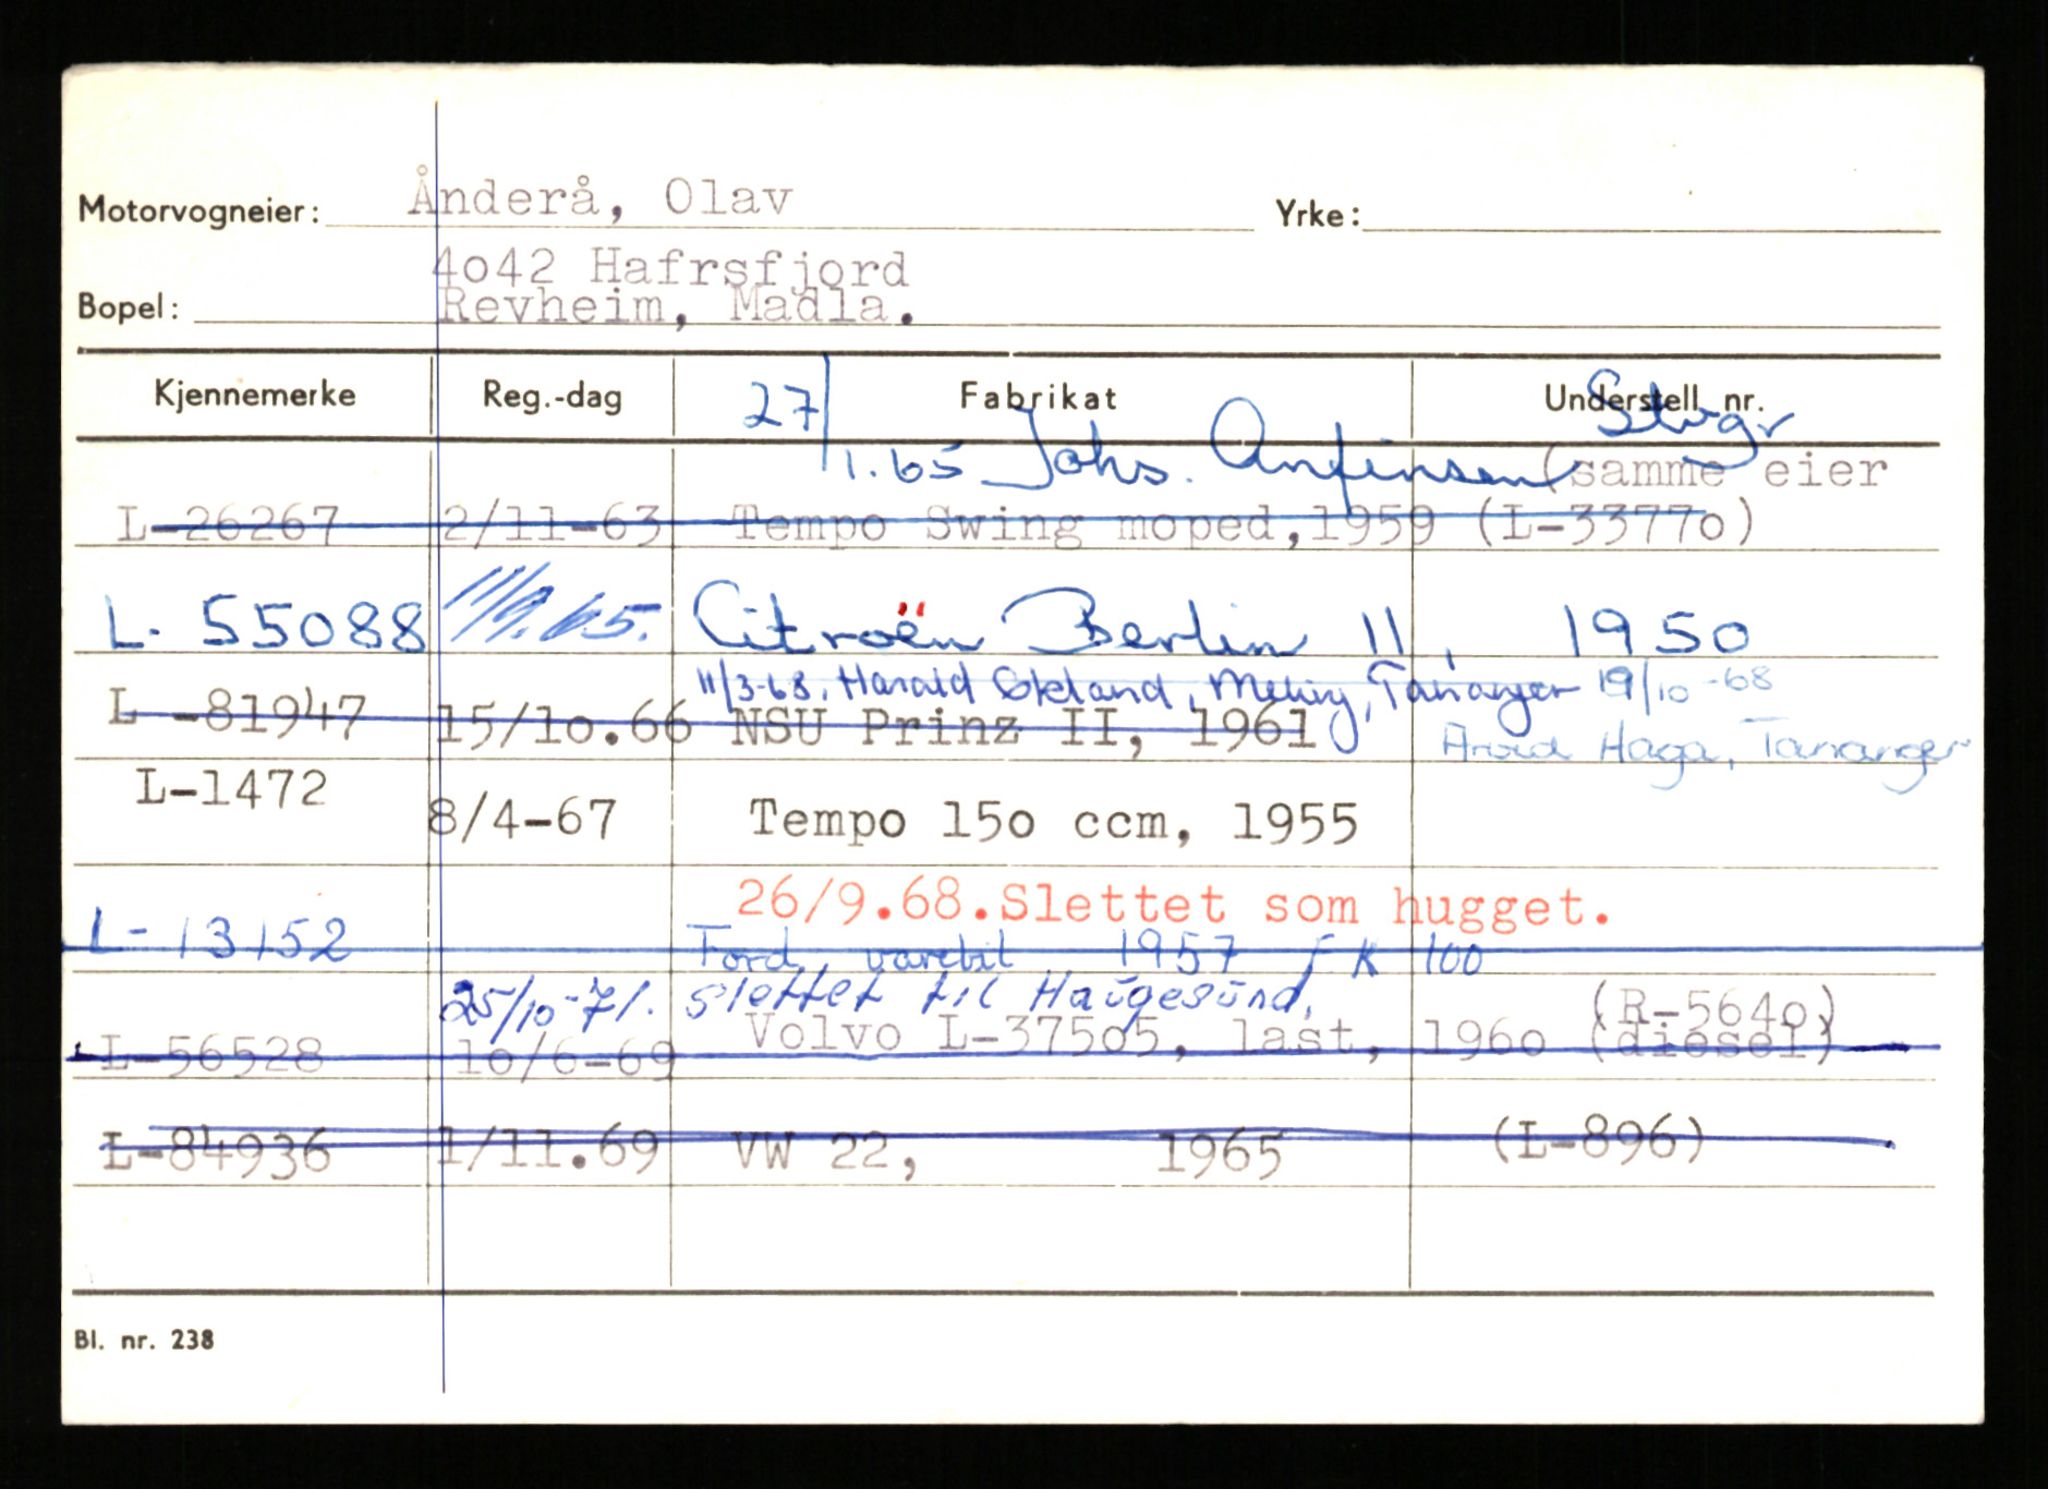 Motorvogneier: Ånderå, Olav Yrke:
4o42 Hafrsfjord
Bopel: Revheim, Madla.
Kjennemerke Reg.-dag Fabrikat Understell nr.
27/1.65 Johs. Anfinsen Stvgr
(samme eier
L-26267 2/11-63 Tempo Swing moped,1959 (L-3377o)
L- 55088 11/9.65. Citroën Berlin 11, 1950
11/3-68. Harald Opland, Meling, Tananger 19/10-68
L -81947 15/1o.66 NSU Prinz II, 1961
Arvid Haga, Tananger
L-1472
8/4-67 Tempo 15o ccm, 1955
26/9.68.Slettet som hugget.
L- 13152 Ford, varebil 1957 FK 100
25/10-71. slettet til Haugesund.
(R-564o)
L-56528 1o/6-69 Volvo L-375o5, last, 196o (diesel)
L-84936 1/11.69 VW 22, 1965 (L-896)
Bl. nr. 238